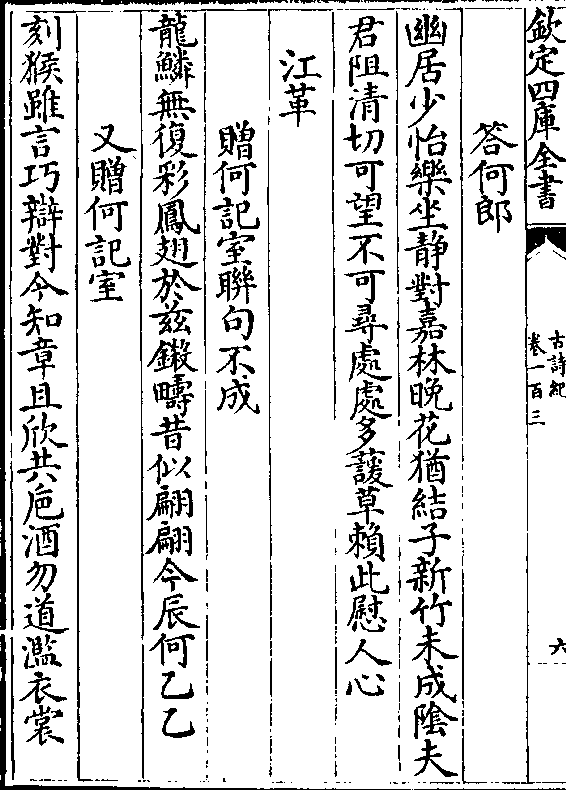 欽定四庫全書
古詩紀
卷一百三
六
答何郎
幽居少怡樂坐静對嘉林晚花猶結子新竹未成隂夫
君阻清切可望不可尋處處多諼草賴此慰人心
江革
贈何記室聯句不成
龍鱗無復彩鳳翅於兹鎩疇昔似翩翩今辰何乙乙
又贈何記室
刻猴雖言巧辯對今知章且欣共巵酒勿道濫衣裳